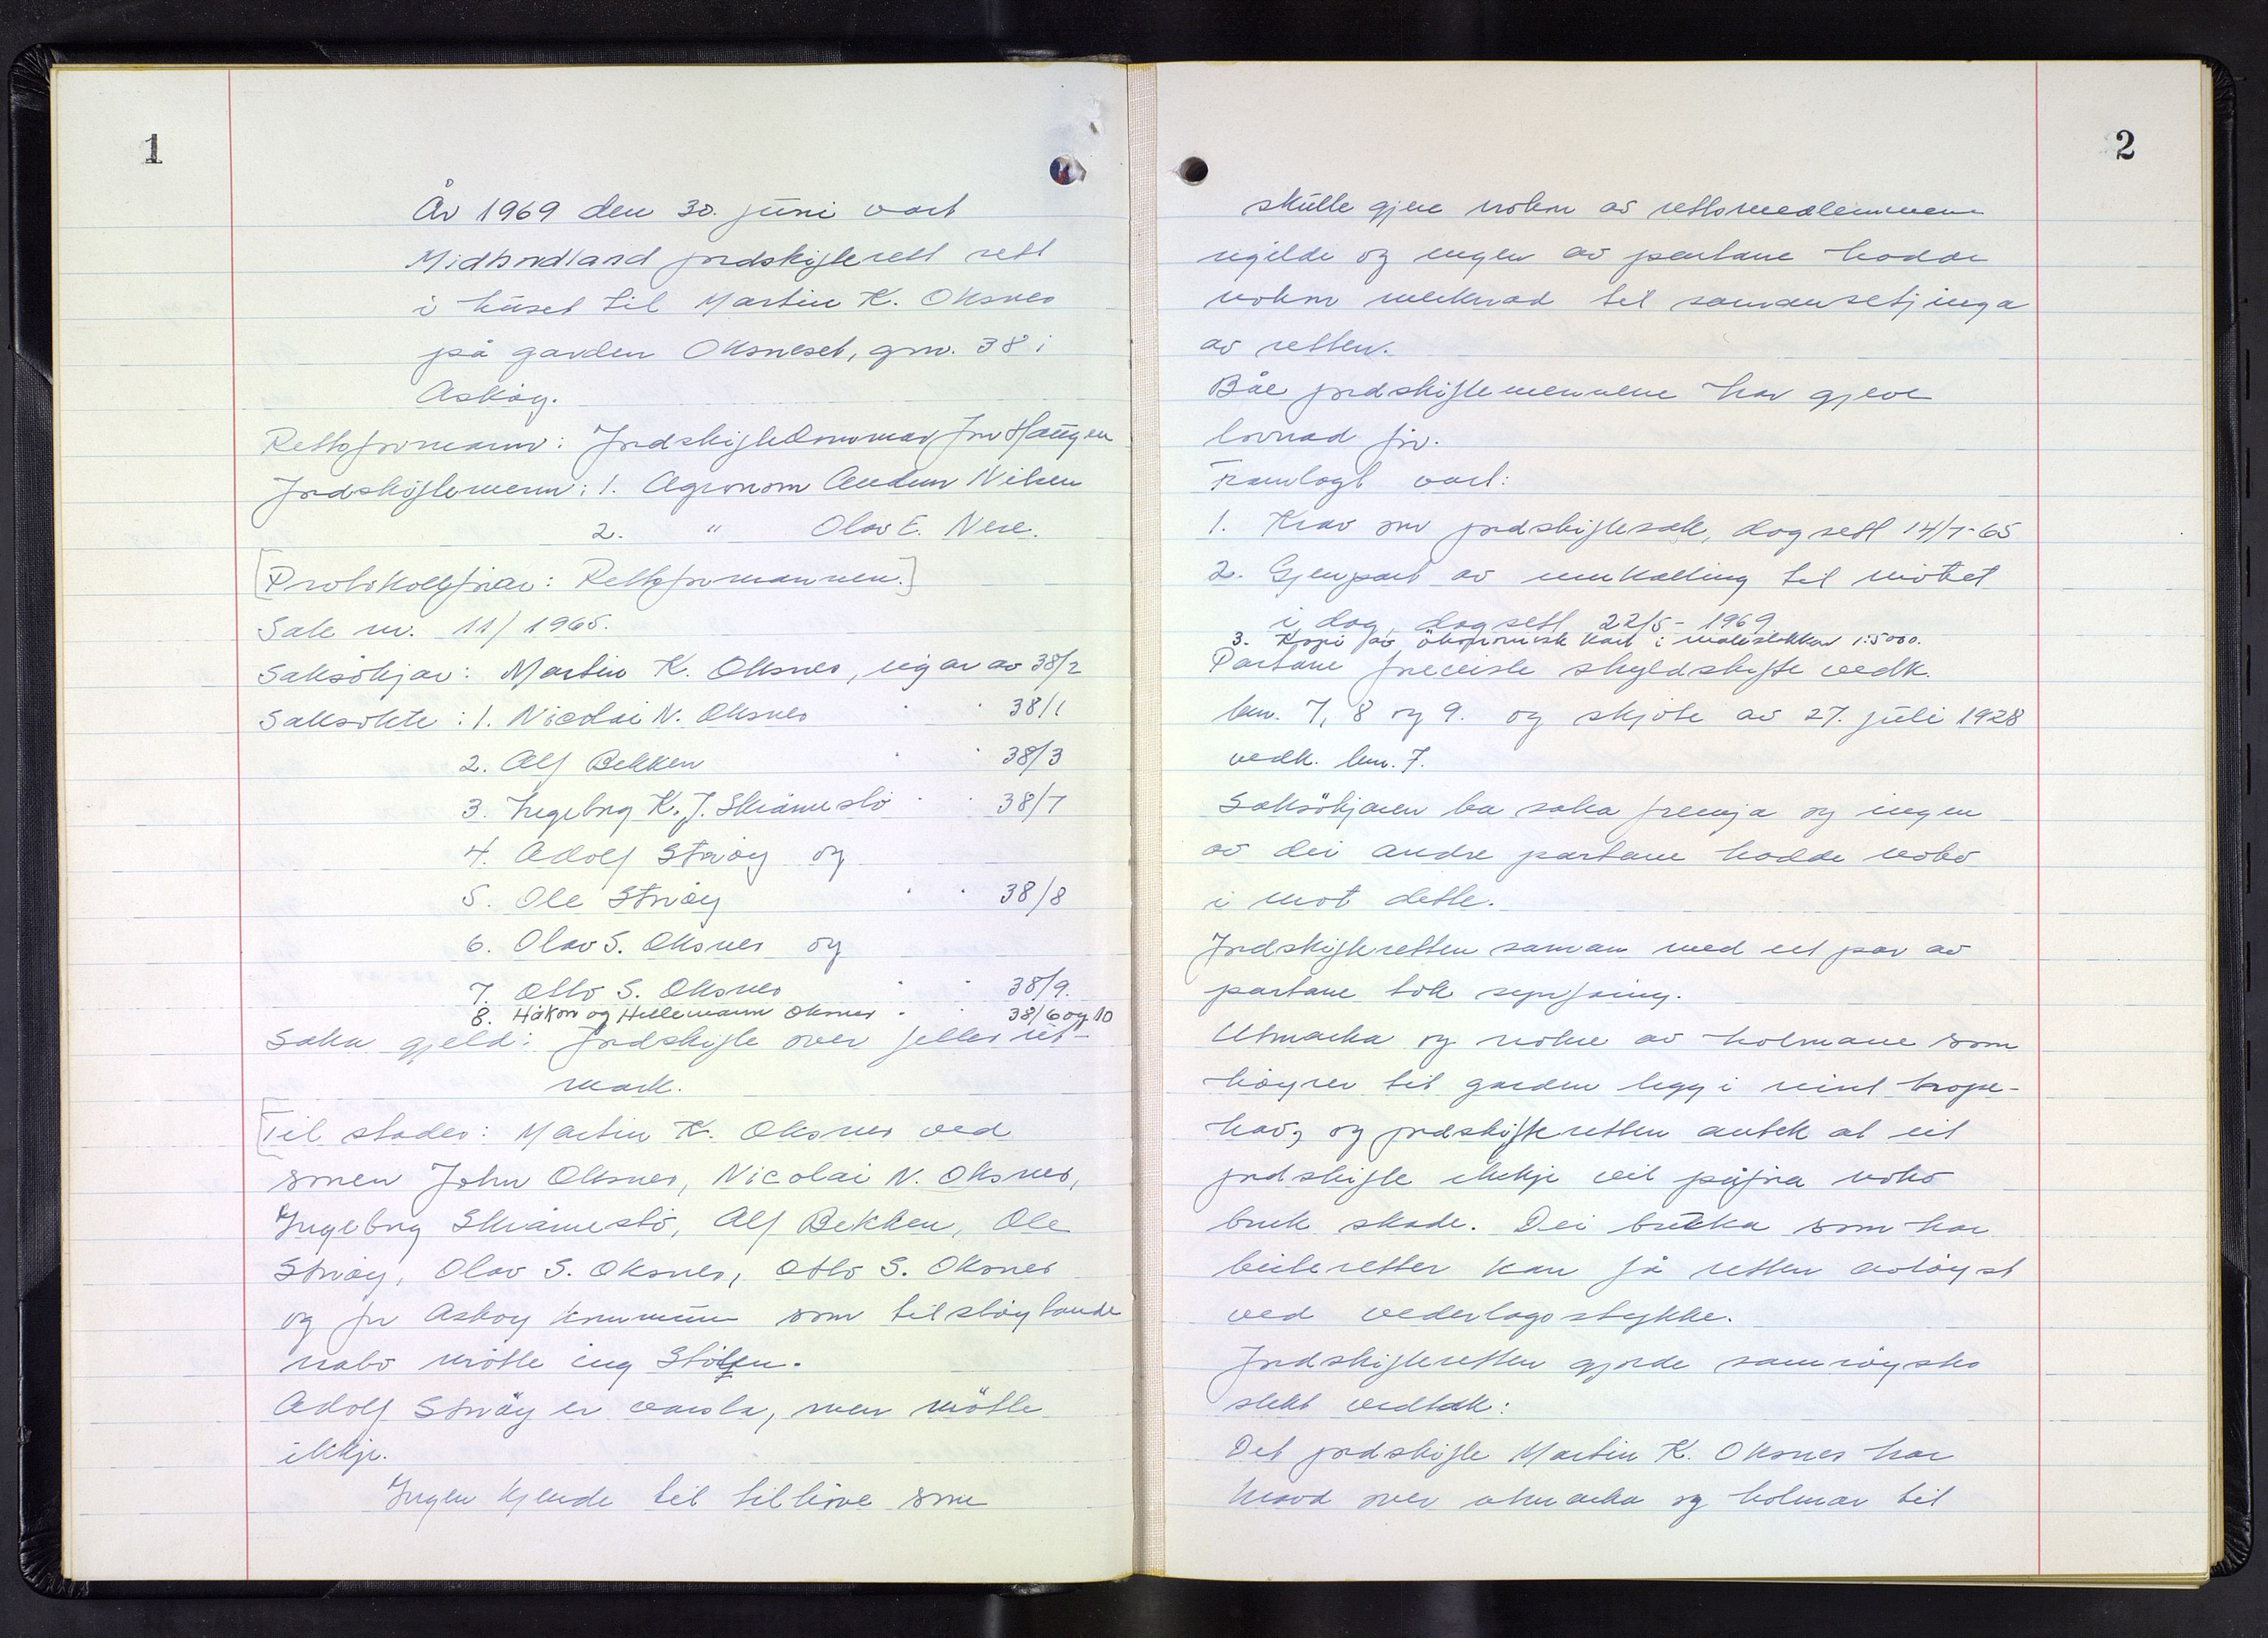 1
År 1969 den 30. juni vart
Midhordland jordskifterett sett
i huset til Martin K. Oksnes
på garden Oksneset, gnr. 38 i
Askøy.
Rettsformann: Jordskiftedommar Jon Haugen
Jordskiftemenn: 1. Agronom Audun Nilsen
2. " Olav E. Nese.
[Protokollførar: Rettsformannen.]
Sak nr. 11/1965.
Saksøkjar: Martin K. Oksnes, eigar av 38/2
Saksøkte: 1. Nicolai N. Oksnes " " 38/1
2. Alf Bekken " " 38/3
3. Ingeborg K. J. Skråmestø " " 38/7
4. Adolf Strøøy og
5. Ole Strøøy " " 38/8
6. Olav S. Oksnes og
7. Otto S. Oksnes " " 38/9.
8. Håkon og Hillemann Oksnes " " 38/6 og 10
Saka gjeld: Jordskifte over felles ut-
mark.
[Til stades: Martin K. Oksnes ved
sonen John Oksnes, Nicolai N. Oksnes,
Ingeborg Skråmestø, Alf Bekken, Ole
Strøøy, Olav S. Oksnes, Otto S. Oksnes
og for Askøy kommune som tilstøytande
nabo møtte ing
Adolf Strøøy er varsla, men møtte
ikkje.
Ingen kjende til tilhøve som
2
skulle gjere nokon av rettsmedlemmene
ugilde og ingen av partane hadde
nokon merknad til samansetjinga
av retten.
Båe jordskiftemennene har gjeve
lovnad før.
Framlagt vart:
1. Krav om jordskiftesak, dagsett 14/7-65
2. Gjenpart av innkalling til møtet
i dag, dagsett 22/5-1969
3. Kopi av økonomisk kart i målestokken 1:5000.
Partane foreviste skyldskifte vedk.
bnr. 7, 8 og 9. og skjøte av 27. juli 1928
vedk. bnr. 7.
Saksøkjaren ba saka fremja og ingen
av dei andre partane hadde noko
i mot dette.
Jordskifteretten saman med eit par av
partane tok synfaring.
Utmarka og nokre av holmane som
høyrer til garden ligg i reint hope-
hav, og jordskifteretten antek at eit
jordskifte ikkje vil påføra noko
bruk skade. Dei bruka som har
beiteretter kan få retten avløyst
ved vederlagsstykke.
Jordskifteretten gjorde samrøystes
slikt vedtak:
Det jordskifte Martin K. Oksnes har
kravd over utmarka og holmar til